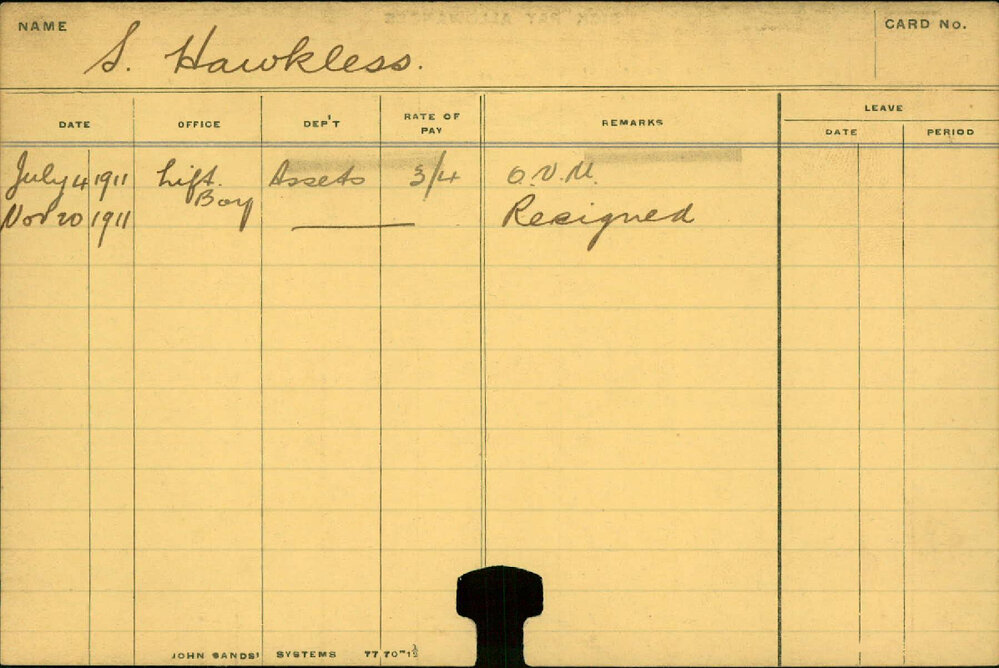 NAME S. Hawkless. CARD No.
DATE OFFICE DEP'T RATE OF PAY REMARKS LEAVE
DATE PERIOD
July 4 1911 Lift Boy Assets 3/4 O.V.M.
Nov 20 1911 Resigned
JOHN SANDS' SYSTEMS 77 70